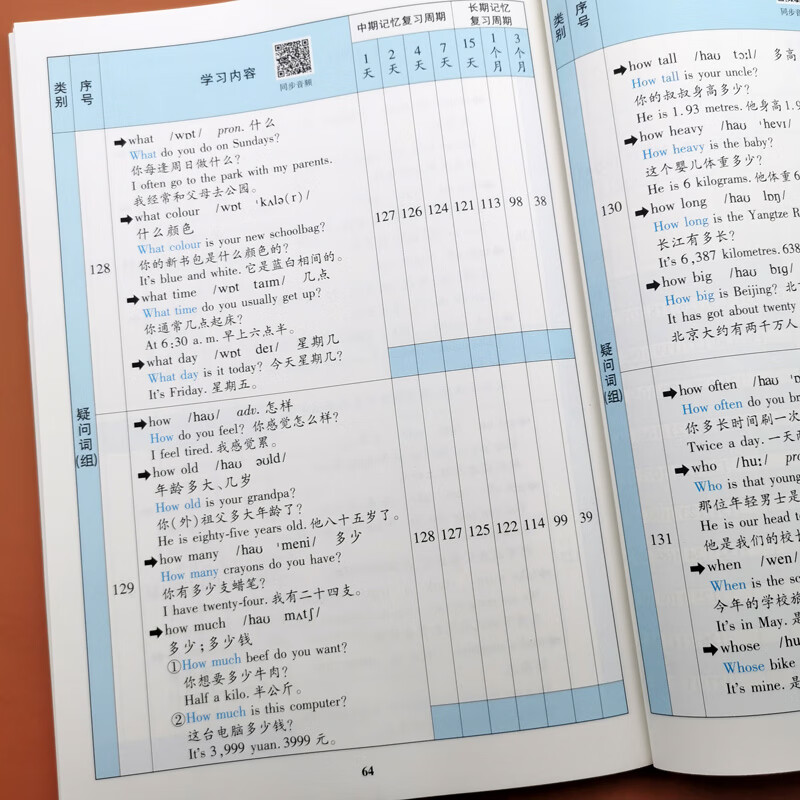 类别
序号
学习内容
同步音频
中期记忆复习周期
长期记忆
复习周期
1天
2天
4天
7天
15天
1个月
3个月
疑问词(组)
128
➡what /wɒt/ pron. 什么
What do you do on Sundays?
你每逢周日做什么?
I often go to the park with my parents.
我经常和父母去公园。
➡what colour /wɒt ˈkʌlə(r)/
什么颜色
What colour is your new schoolbag?
你的新书包是什么颜色的?
It's blue and white. 它是蓝白相间的。
➡what time /wɒt taɪm/ 几点
What time do you usually get up?
你通常几点起床?
At 6:30 a. m. 早上六点半。
➡what day /wɒt deɪ/ 星期几
What day is it today? 今天星期几?
It's Friday. 星期五。
127 126 124 121 113 98 38
129
➡how /haʊ/ adv. 怎样
How do you feel? 你感觉怎么样?
I feel tired. 我感觉累。
➡how old /haʊ əʊld/
年龄多大、几岁
How old is your grandpa?
你(外)祖父多大年龄了?
He is eighty-five years old. 他八十五岁了。
➡how many /haʊ ˈmeni/ 多少
How many crayons do you have?
你有多少支蜡笔?
I have twenty-four. 我有二十四支。
➡how much /haʊ mʌtʃ/
多少;多少钱
①How much beef do you want?
你想要多少牛肉?
Half a kilo. 半公斤。
②How much is this computer?
这台电脑多少钱?
It's 3,999 yuan. 3999 元。
128 127 125 122 114 99 39
64
类别
序号
同步音
疑问词(组)
130
➡how tall /haʊ tɔːl/ 多高
How tall is your uncle?
你的叔叔身高多少?
He is 1.93 metres. 他身高1.9
➡how heavy /haʊ ˈhevɪ/
How heavy is the baby?
这个婴儿体重多少?
He is 6 kilograms. 他体重6
➡how long /haʊ lɒŋ/
How long is the Yangtze R
长江有多长?
It's 6,387 kilometres. 638
➡how big /haʊ bɪg/
How big is Beijing? 北
It has got about twenty
北京大约有两千万人
131
➡how often /haʊ
How often do you br
你多长时间刷一次
Twice a day. 一天两
➡who /huː/ pro
Who is that young
那位年轻男士是
He is our head t
他是我们的校长
➡when /wen/
When is the sc
今年的学校旅
It's in May. 是
➡whose /hu
Whose bike
It's mine. 是